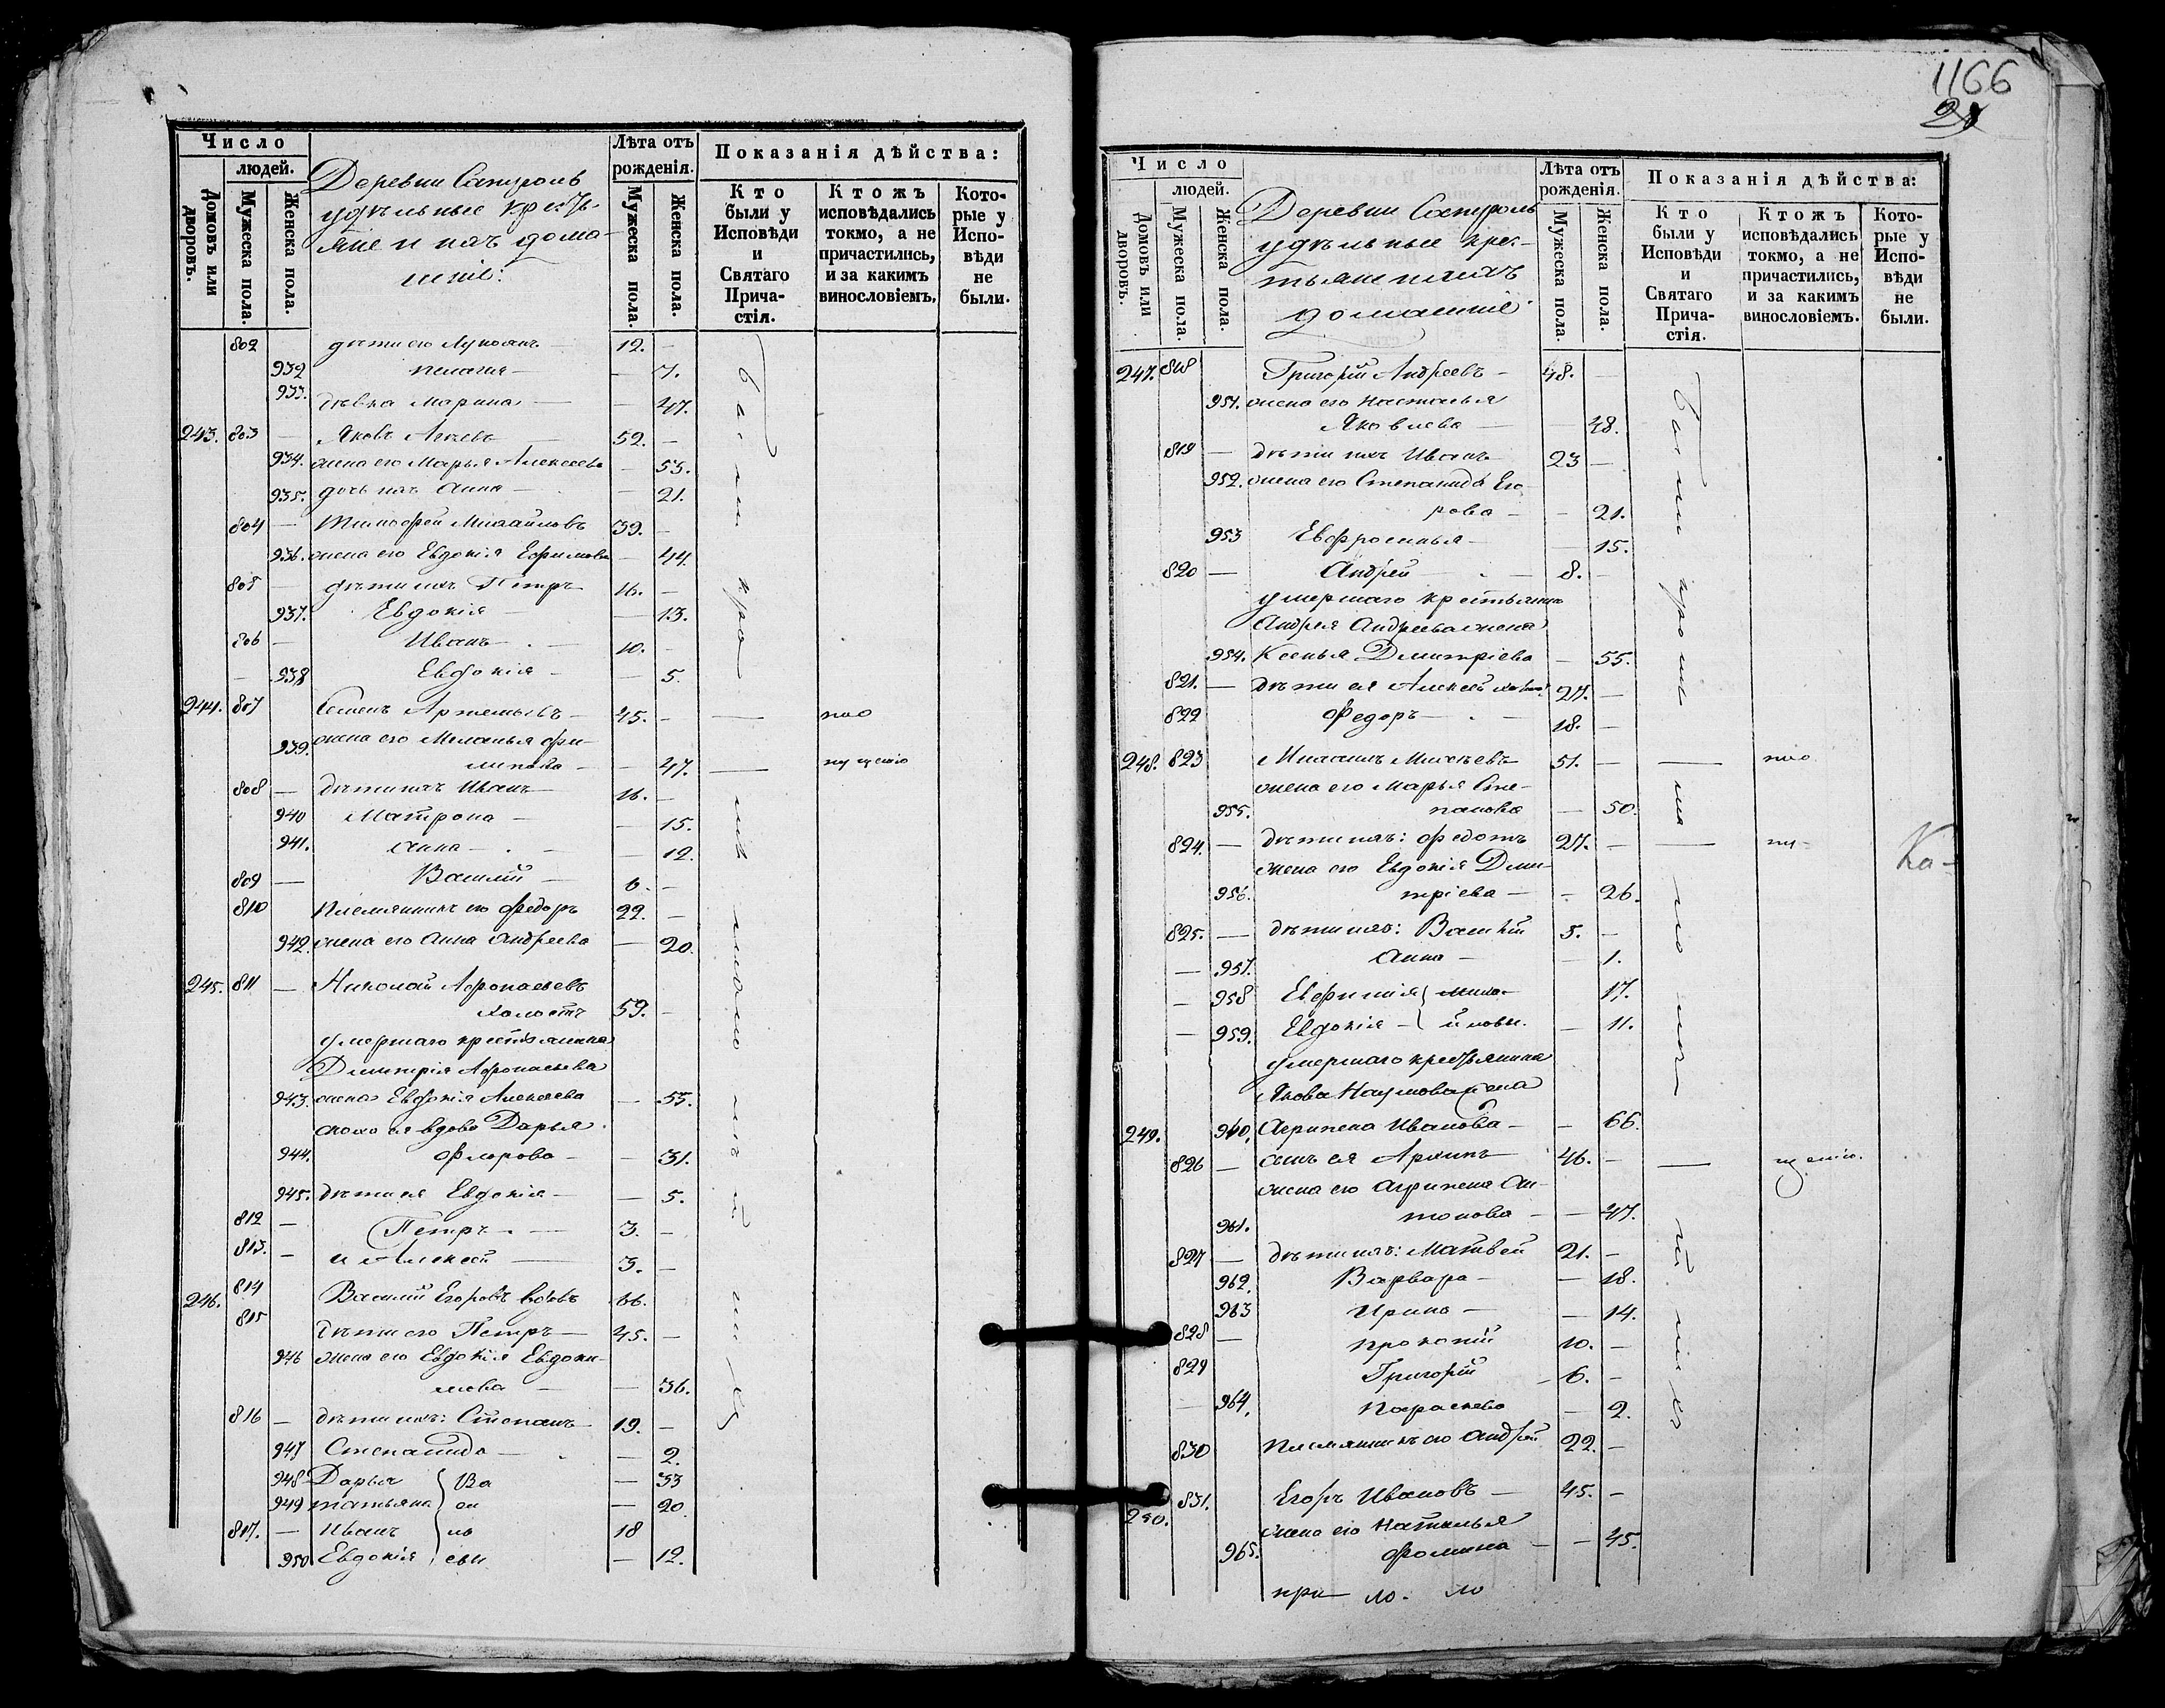 Число
людей.
Домовъ или дворовъ.
Мужеска пола.
Женска пола.
Деревни
удѣльные крестья-
яне и ихъ дома-
шніе:
Лѣта отъ рожденія.
Мужеска пола.
Женска пола.
Показанія дѣйства:
Кто были у Исповѣди и Святаго Прича-стія.
Ктожъ исповѣдались токмо, а не причастились, и за какимъ винословіемъ.
Кото-рые у Испо-вѣди не были.
802 дѣти его Лукоянъ — 12. —
932 Пелагия — — 7.
933. дѣвка Марина — — 47.
243. 803 — Яковъ 52. —
934. жена его Марья Алексеева — 53.
935. дочь ихъ Анна — — 21.
804 — Тимофей Михайловъ 39. —
936. жена его Евдокія Ефимова — 44.
805 — дѣти ихъ Петръ 16. —
937. Евдокія — — 13.
806 — Иванъ — 10. —
— 938 Евдокія — — 5.
244. 807 Семенъ Артемьевъ — 45. — — по
939. жена его Меланья Фи-
липова — — 47. — пущенію
808 — дѣти ихъ Иванъ 16. —
940 Матрона — — 15.
941. Анна — — 12.
809 — Василій — 6. —
810 Племянникъ его Федоръ 22. —
942. жена его Анна Андреева — 20.
245. 811 — Николай Афонасьевъ
холостъ 59. —
умершаго крестьянина
Димитрія Афонасьева
943. жена Евдокія Алексеева — 55.
сноха ея вдова Дарья
944. Флорова — — 31.
945. дѣти ея Евдокія — — 5.
812 — Петръ — 3. —
813. — и Алексей — 3. —
246. 814 Василій Егоровъ вдовъ 66.
815 дѣти его Петръ — 45. —
946 жена его Евдокія Евдоки-
мова — — 36.
816 — дѣти ихъ: Степанъ 19. —
947 Степанида — — 2.
948 Дарья Ва — 33
949 Татьяна си — 20.
817. — Иванъ ль 18
950 Евдокія евы — 12.
1166
28
Число
людей.
Домовъ или дворовъ.
Мужеска пола.
Женска пола.
Деревни
удѣльные крес-
тьяне и ихъ
домашніе
Лѣта отъ рожденія.
Мужеска пола.
Женска пола.
Показанія дѣйства:
Кто были у Исповѣди и Святаго Прича-стія.
Ктожъ исповѣдались токмо, а не причастились, и за какимъ винословіемъ.
Кото-рые у Испо-вѣди не были.
247. 818 Григорій Андреевъ — 48. —
951. жена его Настасья
Яковлева — — 48.
819 — дѣти ихъ Иванъ 23 —
952. жена его Степанида Его-
рова — — 21.
953 Евфросинья — — 15.
820 — Андрей — 8. —
умершаго крестьянина
Андрея Андреева жена
954. Ксенья Димитріева — 55.
821. — дѣти ея Алексей 27. —
822 Федоръ — 18. —
248. 823 51. — — по
жена его Марья Сте-
955. панова — 50.
824. — дѣти ихъ: Федотъ 27. — — пу-
жена его Евдокія Дми-
956. тріева — — 26.
825. — дѣти ихъ: Василій 5. —
— 957. Анна — — 1.
— 958 Евфимія Миха- 17.
— 959. Евдокія — йловы. — 11.
умершаго крестьянина
Якова Наумова жена
249. 960. Агрипена Иванова — — 66.
826 — сынъ ея Архипъ 46. — — щенію.
жена его Агрипена Ан-
961. тонова — — 47.
827 — дѣти ихъ: Матвей 21. —
962. Варвара — — 18.
963 Ирина — — 14.
828 — Прокопій 10. —
829 Григорій — 6. —
— 964. Параскева — 2.
830 Племянникъ его Андрей 22. —
250. 831. Егоръ Ивановъ — 45. —
жена его Наталья
965. Фомина — — 45.
Ка-
при ло. ло